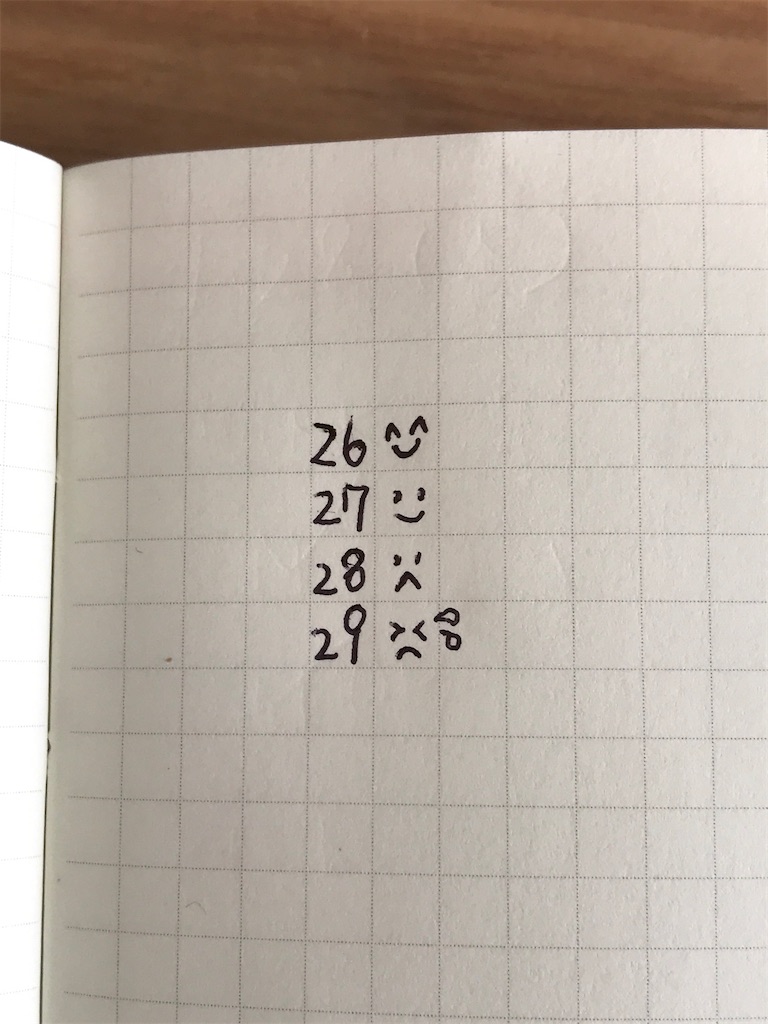 26 ^‿^
27 :)
28 :(
29 >_<